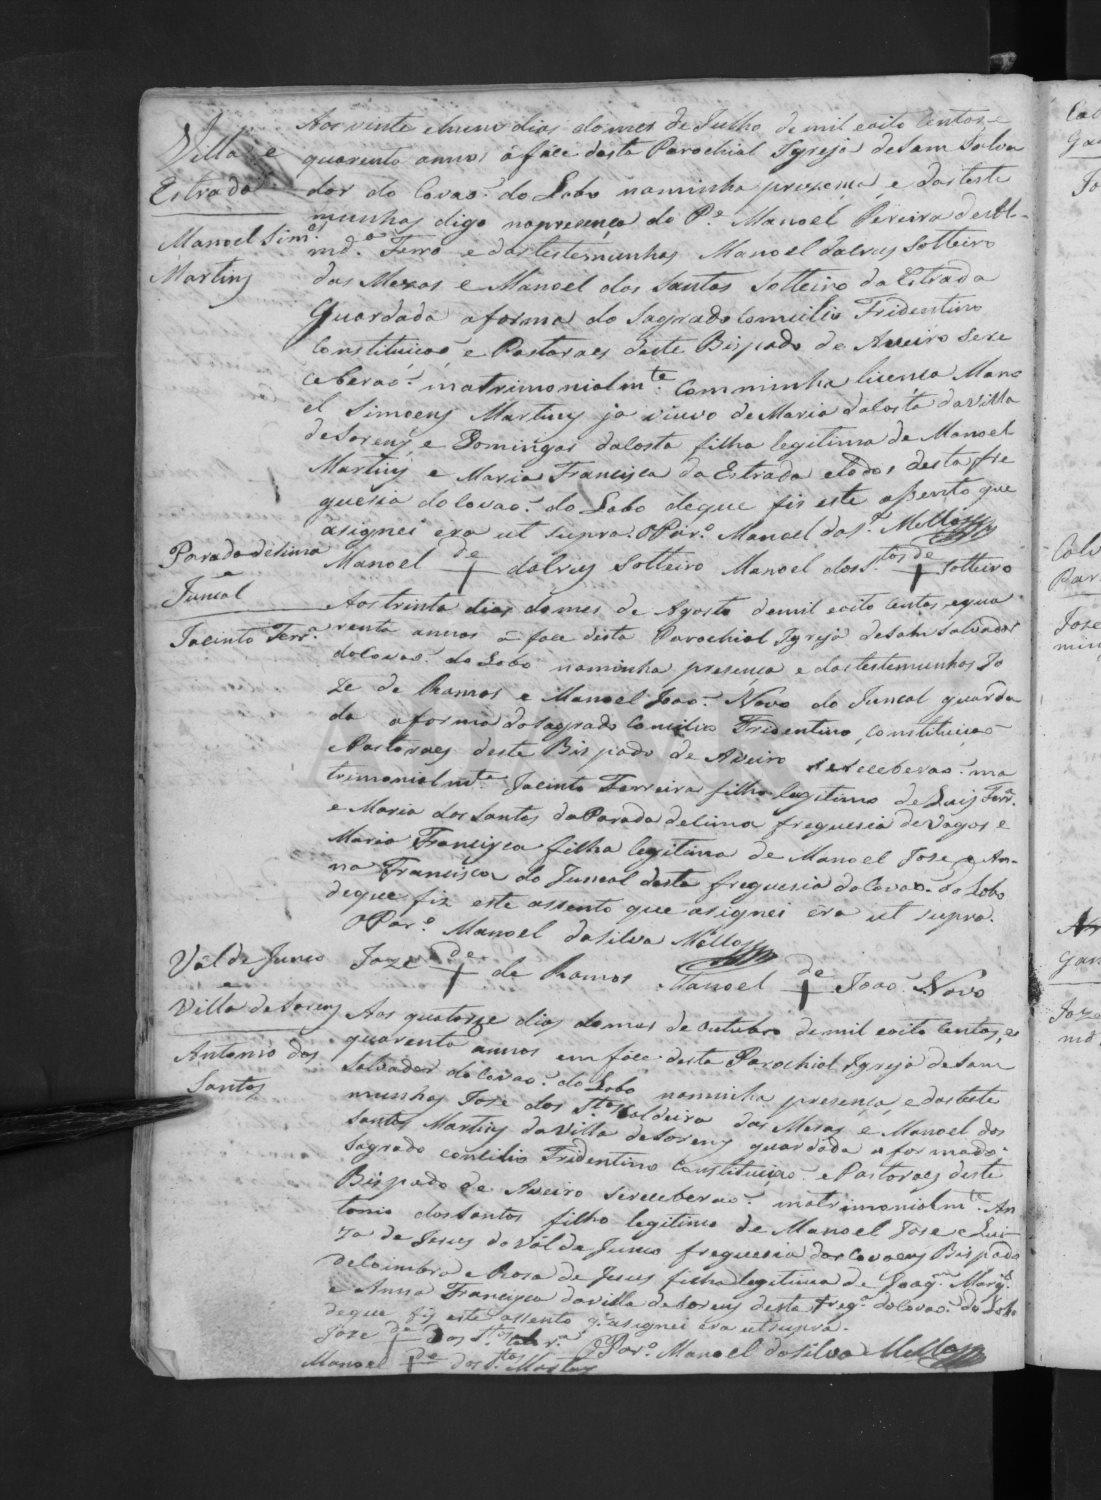 Villa e
Estrada
Manoel Sim.es
Martins
Aos vinte e hum dias do mes de Julho de mil e oito Centos e
quarenta annos á face desta Parochial Igreja de Sam Salva
dor do Covaõ do Lobo na minha presença, e das teste
munhas digo na presença do P.e Manoel Pereira
Ferro e das testemunhas Manoel dalves Solteiro
das Mezas e Manoel dos Santos Solteiro da Estrada
Guardada a forma do Sagrado Concilio Tridentino
Constituicoẽ e Pastoraes deste Bispado de Aveiro Sere
ceberaõ matrimonialm.te Com minha licença Mano
el Simoens Martins ja viuvo de Maria dalosta da Villa
de Sorens, e Domingas dalosta filha legitima de Manoel
Martins e Maria Francisca da Estrada e todos desta fre
guesia do Covaõ do Lobo de que fis este assento que
asignei era ut supra. O Par.o Manoel da S.a Mello
Manoel de dalves Solteiro Manoel dos S.tos de Solteiro
Parada de Sima
e
Juncal
Jacinto Ferr.a
Aos trinta dias do mes de Agosto de mil e oito Centos, e qua
renta annos á face desta Parochial Igreja de Sam Salvador
do Covaõ do Lobo na minha presença e das testemunhas Jo
ze de Ramos e Manoel Joaõ Novo do Juncal guarda
da a forma do Sagrado Concilio Tridentino, Constituicaõ
e Pastoraes deste Bispado de Aveiro se receberaõ ma
trimonialm.te Jacinto Ferreira filho legitimo de Luis Ferr.a
e Maria dos Santos da Parada de lima freguesia de Vagos e
Maria Francisca filha legitima de Manoel Jose e An-
na Francisca do Juncal desta freguesia do Covaõ do Lobo
de que fiz este assento que asignei era ut supra.
O Par.o Manoel da Silva Mello
Joze de de Ramos Manoel de Joaõ Novo
Val de Junco
e
Villa de Sorens
Antonio dos
Santos
Aos quatorze dias do mes de Outubro de mil e oito Centos, e
quarenta annos em face desta Parochial Igreja de Sam
Salvador do Covaõ do Lobo na minha presença, e das teste
munhas Joze dos S.tos Caldeira das Mesas, e Manoel dos
Santos Martins da Villa de Sorens guardada a forma do
Sagrado Concilio Tridentino Constituiçaõ e Pastoraes deste
Bispado de Aveiro se receberaõ matrimonialm.te An
tonio dos Santos filho legitimo de Manoel Jose e Lui-
za de Jesus do Val de Junco freguesia dos Covoens Bispado
de Coimbra e Rosa de Jesus filha legitima de Joaq.m Marq.s
e Anna Francisca da villa de Sorens desta freg.a do Covaõ do Lobo
de que fis este assento q asignei era ut supra.
Joze de dos S.tos O Par.o Manoel da Silva Mello
Manoel de dos S.tos Martins